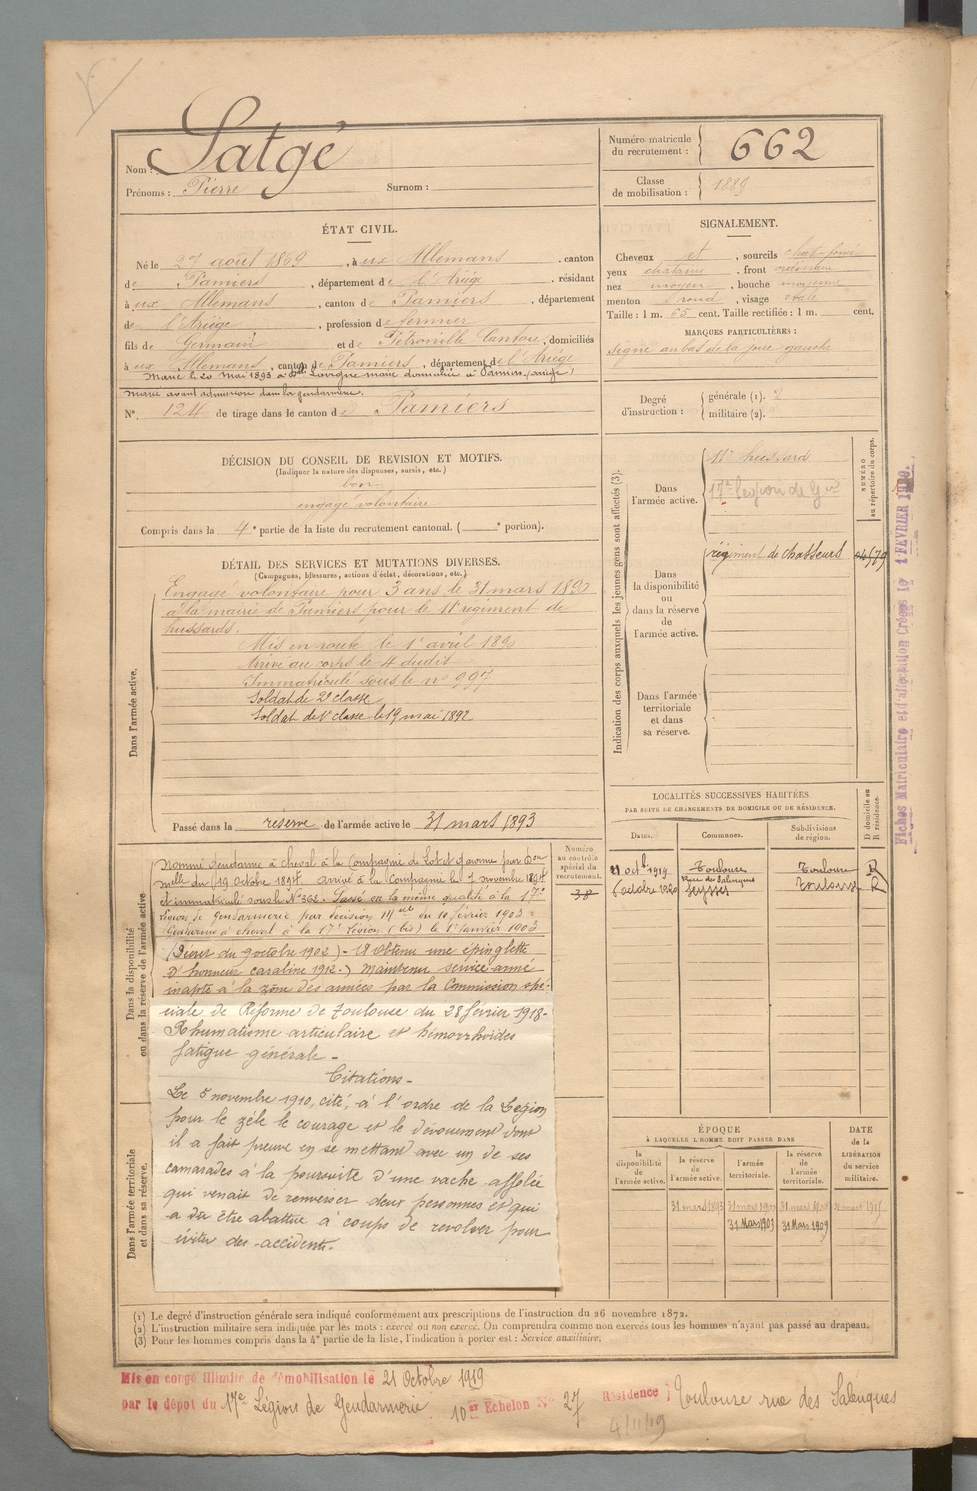 Nom : Satgé
Prénoms : Pierre Surnom :
Numéro matricule
du recrutement : 662
Classe
de mobilisation : 1889
ÉTAT CIVIL.
Né le 27 août 1869, à ux Allemans, canton
de Pamiers, département de l'Ariège, résidant
à ux Allemans, canton de Pamiers, département
de l'Ariège, profession de fermier
fils de Germain et de Pétronille Cantou, domiciliés
à ux Allemans, canton de Pamiers, département de l'Ariège
Marié le 20 mai 1893 à Lavigne marie domiciliée à Pamiers (ariège)
Marié avant admission dans la gendarmerie.
N° 124 de tirage dans le canton de Pamiers
SIGNALEMENT.
Cheveux et, sourcils chat. foncé
yeux chatains, front ordinaire
nez moyen, bouche moyenne
menton rond, visage ovale
Taille : 1 m. 65 cent. Taille rectifiée : 1 m. cent.
MARQUES PARTICULIÈRES :
signe au bas de la joue gauche
Degré
d'instruction :
générale (1). 2
militaire (2).
DÉCISION DU CONSEIL DE REVISION ET MOTIFS.
(Indiquer la nature des dispenses, sursis, etc.)
bon
engagé volontaire
Compris dans la 4e partie de la liste du recrutement cantonal. ( e portion).
DÉTAIL DES SERVICES ET MUTATIONS DIVERSES.
(Campagnes, blessures, actions d'éclat, décorations, etc.)
Dans l'armée active.
Engagé volontaire pour 3 ans le 31 mars 1890
à la mairie de Pamiers pour le 11e régiment de
hussards.
Mis en route le 1er avril 1890
Arrivé au corps le 4 dudit
Immatriculé sous le no 997
Soldat de 2e classe
Soldat de 1e classe le 19 mai 1892
Passé dans la réserve de l'armée active le 31 mars 1893
Indication des corps auxquels les jeunes gens sont affectés (3).
Dans
l'armée active.
11e hussard
17e Légion de Gie
NUMÉRO
au répertoire du corps.
Dans
la disponibilité
ou
dans la réserve
de
l'armée active.
régiment de chasseurs
Dans l'armée
territoriale
et dans
sa réserve.
Dans la disponibilité
ou dans la réserve de l'armée active
Nommé Gendarme à cheval à la Compagnie de Lot et Garonne par Don
mlle du 19 octobre 1894. Arrivé à la Compagnie le 7 novembre 1894
et immatriculé sous le No 362. Passé en la même qualité à la 17e
légion de Gendarmerie par décision mlle du 10 février 1903
Gendarme à cheval à la 17e Légion (bis) le 1er janvier 1903
(Décret du 9 octobre 1902) - A obtenu une épinglette
d'honneur carabine 1912.) Maintenu service armé
inapte à la zone des armées par la Commission spé-
ciale de Réforme de Toulouse du 28 février 1918-
Rhumatisme articulaire et hémorrhoïdes
fatigue générale -
Citations -
Le 5 novembre 1910, cité, à l'ordre de la Légion
pour le zèle le courage et le dévouement dont
il a fait preuve en se mettant avec un de ses
camarades à la poursuite d'une vache affolée
qui venait de renverser deux personnes et qui
a dû être abattue à coups de revolver pour
éviter des accidents.
Dans l'armée territoriale
et dans sa réserve.
Numéro
au contrôle
spécial du
recrutement.
38
LOCALITÉS SUCCESSIVES HABITÉES
PAR SUITE DE CHANGEMENTS DE DOMICILE OU DE RÉSIDENCE.
Dates. Communes. Subdivisions
de région.
D domicile ou
R résidence.
21 oct. 1919 Toulouse Toulouse R
Rue des Salenques
6 octobre 1920 Seysses Toulouse R
ÉPOQUE
À LAQUELLE L'HOMME DOIT PASSER DANS
la
disponibilité
de
l'armée active.
la réserve
de
l'armée active.
l'armée
territoriale.
la réserve
de
l'armée
territoriale.
DATE
de la
LIBÉRATION
du service
militaire.
31 mars 1893
31 Mars 1903 31 Mars 1909
Fiches Matriculaire et d'affectation Créées le 1 FÉVRIER 1920.
(1) Le degré d'instruction générale sera indiqué conformément aux prescriptions de l'instruction du 26 novembre 1872.
(2) L'instruction militaire sera indiquée par les mots : exercé ou non exercé. On comprendra comme non exercés tous les hommes n'ayant pas passé au drapeau.
(3) Pour les hommes compris dans la 4e partie de la liste, l'indication à porter est : Service auxiliaire.
Mis en congé illimité de démobilisation le 21 Octobre 1919
par le dépôt du 17e Légion de Gendarmerie 10e Echelon No 27 Résidence : Toulouse rue des Salenques
4/11/19